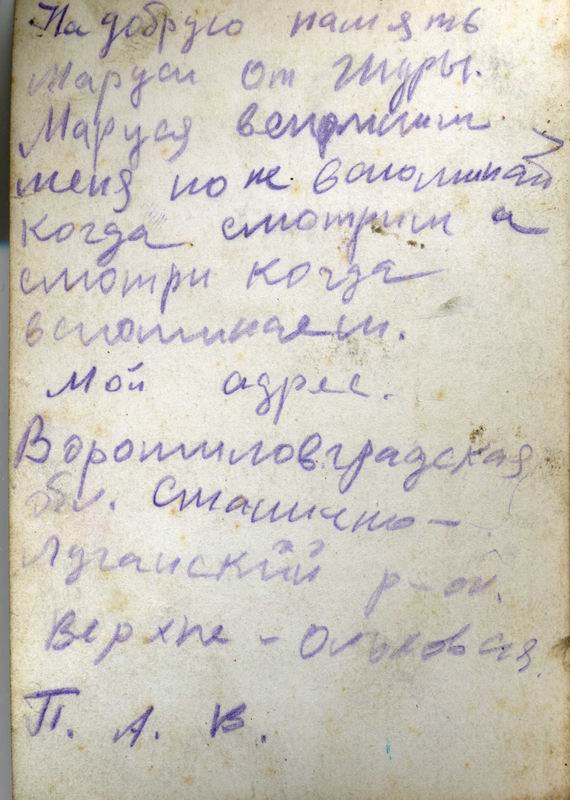 На добрую память
Маруси от Шуры.
Маруся вспомни
меня но не вспоминай
когда смотриш а
смотри когда
вспоминаеш.
Мой адрес.
Ворошиловградская
обл. Станично-
Луганский р-он.
Верхне-Ольховская.
П. А. В.